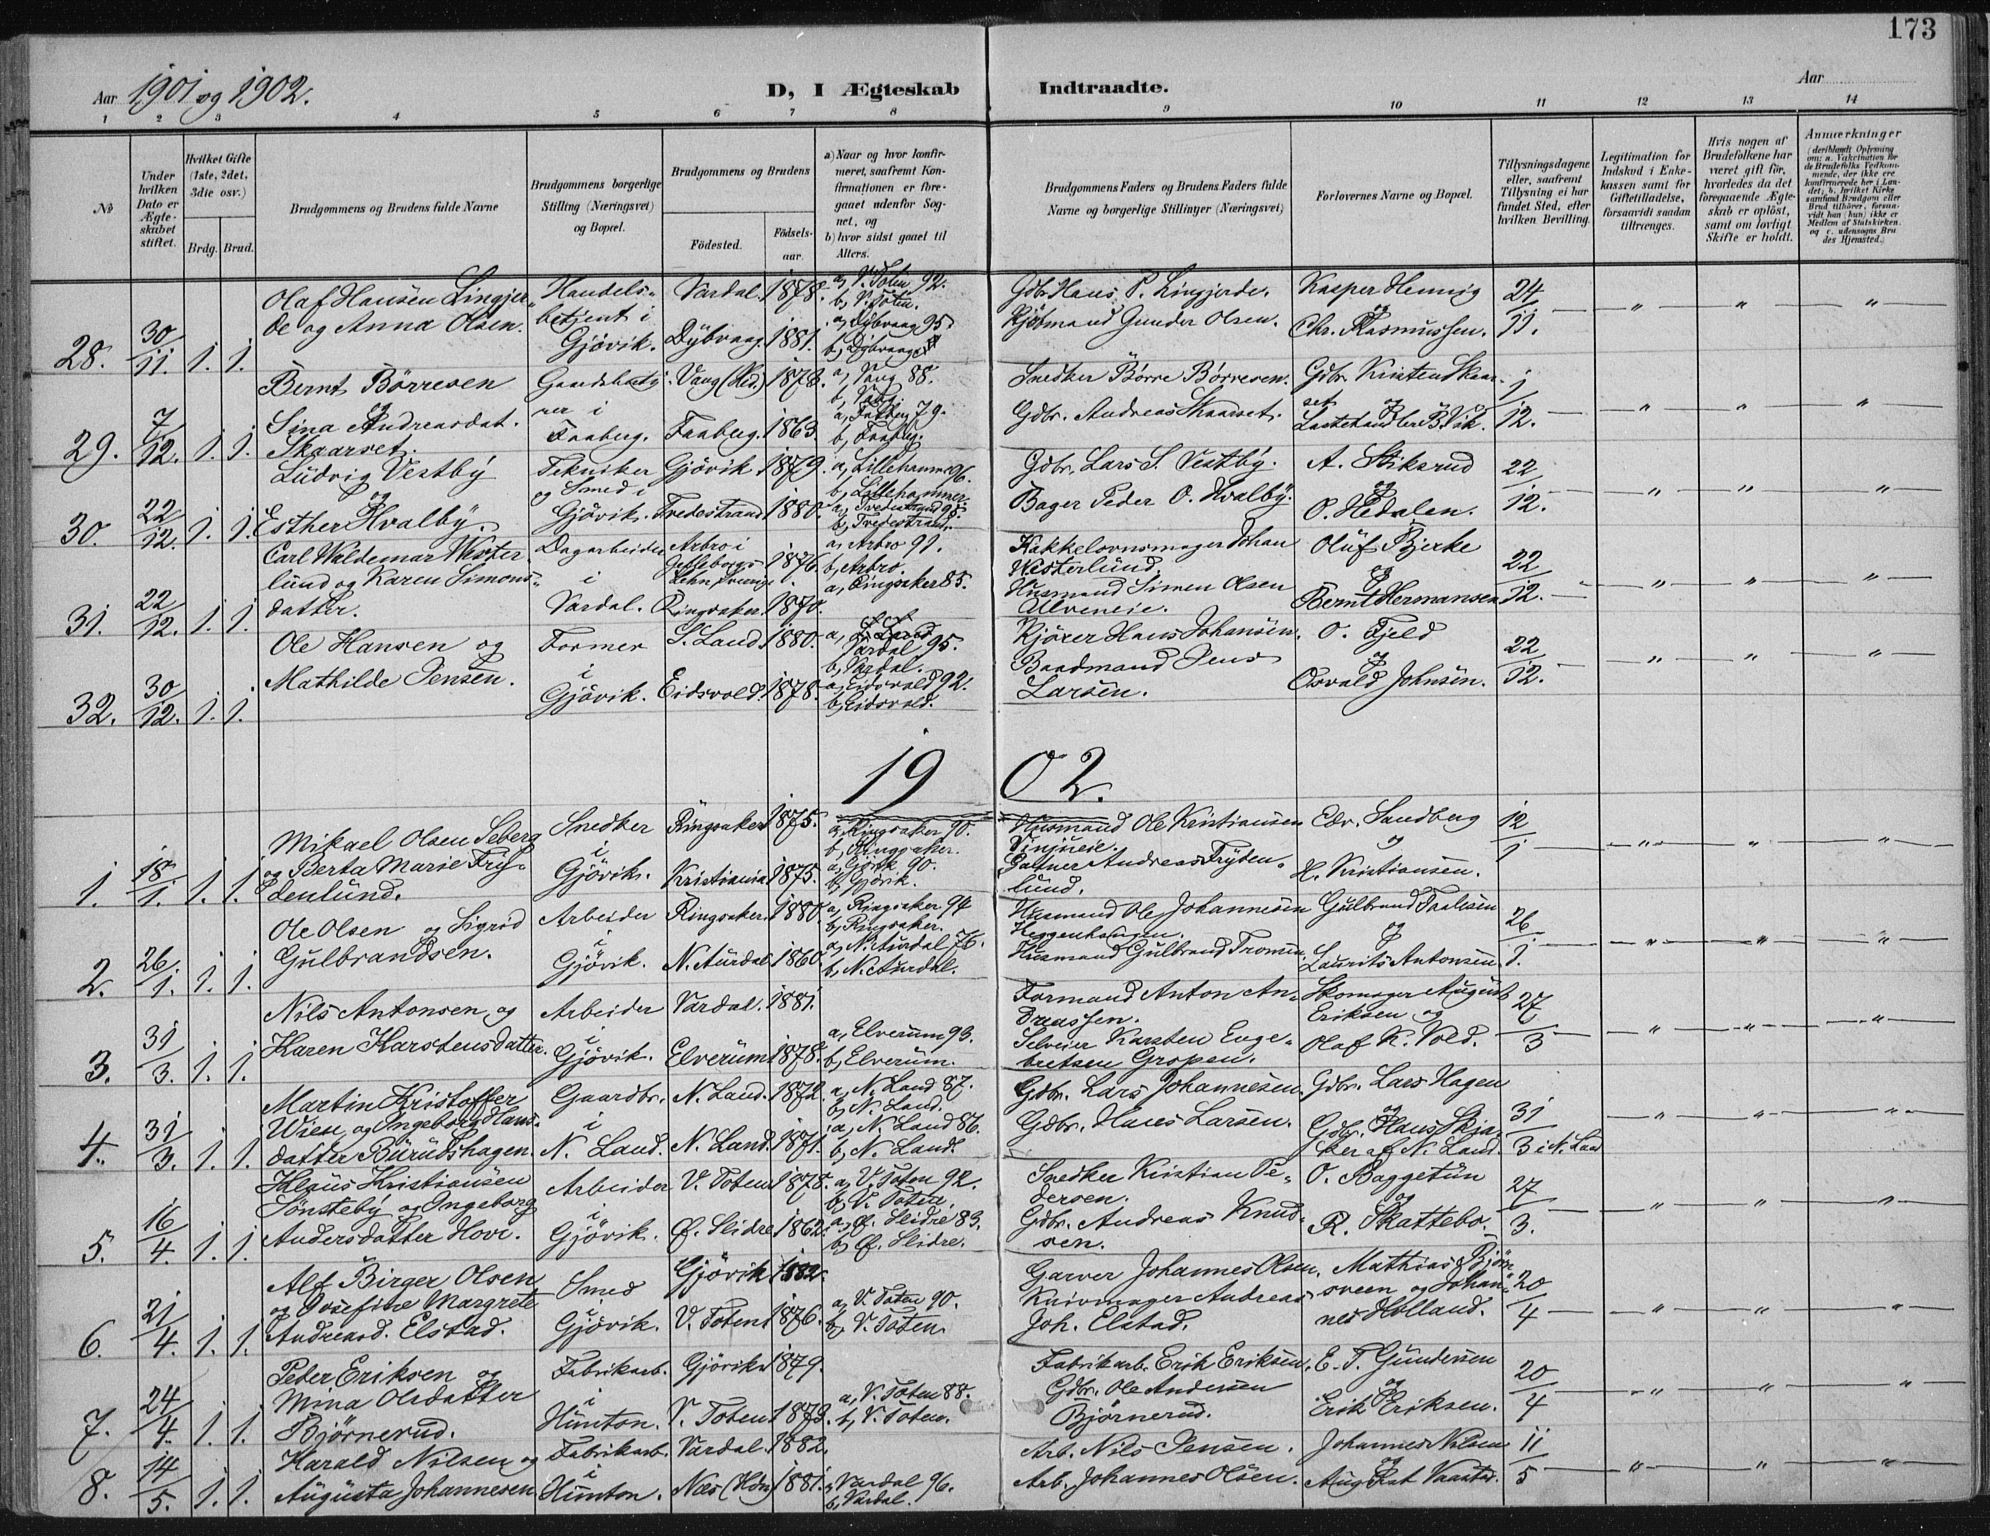 173
Aar 1901 og 1902.
D, I Ægteskab Indtraadte.
Aar
1 2 3 4 5 6 7 8 9 10 11 12 13 14
№
Under hvilken Dato er Ægteskabet stiftet.
Hvilket Gifte (1ste, 2det, 3die osv.)
Brdg. Brud.
Brudgommens og Brudens fulde Navne
Brudgommens borgerlige Stilling (Næringsvei) og Bopæl.
Brudgommens og Brudens
Födested.
Födselsaar.
a) Naar og hvor konfirmeret, saafremt Konfirmationen er foregaaet udenfor Sognet, og
b) hvor sidst gaaet til Alters.
Brudgommens Faders og Brudens Faders fulde Navne og borgerlige Stillinger (Næringsvei)
Forlovernes Navne og Bopæl.
Tillysningsdagene eller, saafremt Tillysning ei har fundet Sted, efter hvilken Bevilling.
Legitimation for Indskud i Enkekassen samt for Giftetilladelse, forsaavidt saadan tiltrænges.
Hvis nogen af Brudefolkene har været gift før, hvorledes da det foregaaende Ægteskab er opløst, samt om lovligt Skifte er holdt.
Anmærkninger
28. 30/11. 1. 1. Olaf Hansen Lingjerde og Anna Olsen. Handelsbetjent i Gjövik. Vardal. 1878. a, V. Toten 92. b, V. Toten.
Dybvaag. 1881. a, Dybvaag 95. b, Dybvaag
Gdbr. Hans P. Lingjerde. Kjøbmand Gunder Olsen. Kasper Hennig og Chr. Rasmussen. 24/11.
29. 7/12. 1. 1. Bernt Börresen og Sina Andreasdat. Skaarset. i Faaberg. Vang (Hed.) 1878. a, Vang 88. b, Vang.
Faaberg. 1863. a, Faaberg 79. b, Faaberg.
Snedker Börre Börresen. Gdbr. Andreas Skaarset. Gdbr. Kristen Skaarset og B. Vik. 1/12.
30. 22/12. 1. 1. Ludvig Vestby og Esther Hvalby. Tekniker og Smed i Gjövik. Gjövik. 1879. a, Lillehammer 96. b, Lillehammer.
Tvedestrand 1880. a, Tvedestrand 95. b, Tvedestrand.
Gdbr. Lars S. Vestby. Bager Peder O. Hvalby. A. Stiksrud og O. Hedalen. 22/12.
31. 22/12. 1. 1. Carl Waldemar Westerlund og Karen Simonsdatter. Dagarbeider i Vardal. Arbro i Gefleborgs Lehn, Sverige 1876. a, Arbro 91. b, Arbro.
Ringsaker. 1870. a, Ringsaker 85.
Kakkelovnsmager Johan Westerlund. Husmand Simen Olsen Alveneie. Oluf Bjerke og Bernt Hermansen 22/12.
32. 30/12. 1. 1. Ole Hansen og Mathilde Jensen. Former i Gjövik. S. Land. 1880. a, Vardal 95. b, Vardal.
Eidsvold. 1878. a, Eidsvold 92. b, Eidsvold.
Kjörer Hans Johansen. Baadmand Jens Larsen. O. Fjeld og Osvald Johnsen. 22/12.
1902.
1. 18/1. 1. 1. Mikael Olsen Seberg og Berta Marie Frydenlund. Snedker i Gjövik. Ringsaker 1875. a, Ringsaker 90. b, Ringsaker.
Kristiania 1875. a, Gjövik 90. b, Gjövik.
Husmand Ole Kristiansen Vinjueie. Gartner Andreas Frydenlund. Edv. Sandberg og H. Kristiansen. 12/1
2. 26/1. 1. 1. Ole Olsen og Sigrid Gulbrandsen. Arbeider i Gjövik. Ringsaker. 1880. a, Ringsaker 94 b, Ringsaker.
N. Aurdal 1860. a, N. Aurdal 76. b, N. Aurdal.
Husmand Ole Johannesen Heggenhaugen. Husmand Gulbrand Gulbrand Paulsen og Laurits Antonsen. 26/1.
3. 31/3. 1. 1. Nils Antonsen og Karen Karstensdatter. Arbeider i Gjövik. Vardal. 1881.
Elverum 1878. a, Elverum 93. b, Elverum.
Formand Anton Andreassen. Selveier Karsten Engebretsen Gropen. Skomager August Eriksen og Olaf K. Vold. 27/3
4. 31/3. 1. 1. Martin Kristoffer Wien og Ingeborg Hansdatter Burudshagen. Gaardbr. i N. Land. N. Land. 1872. a, N. Land 87. b, N. Land.
N. Land. 1871. a, N. Land 86. b, N. Land.
Gdbr. Lars Johannesen. Gdbr. Hans Larsen. Gdbr. Lars Hagen og Gdbr. Hans Skjaker af N. Land. 31/3 i N. Land
5. 16/4. 1. 1. Klaus Kristiansen Sönsteby og Ingeborg Andersdatter Hove. Arbeider i Gjövik. V. Toten 1878. a, V. Toten 92. b, V. Toten.
Ø. Slidre 1862. a, Ø. Slidre 83. b, Ø. Slidre.
Snedker Kristian Pedersen. Gdbr. Andreas Knudsen. O. Baggetun og R. Skattebo. 27/3.
6. 21/4. 1. 1. Alf Birger Olsen og Josefine Margrete Andreasd. Elstad. Smed i Gjövik. Gjövik 1882.
V. Toten 1876. a, V. Toten 90. b, V. Toten.
Garver Johannes Olsen. Knivmager Andreas Joh. Elstad. Mathias Bjørnsveen og Johannes Holland. 20/4
7. 24/4. 1. 1. Peter Eriksen og Mina Olsdatter Bjørnerud. Fabrikarb. i Hunton. Gjövik 1879.
V. Toten 1873. a, V. Toten 88. b, V. Toten.
Fabrikarb. Erik Eriksen. Gdbr. Ole Andersen Bjørnerud. E. T. Gundersen og Erik Eriksen. 20/4
8. 14/5. 1. 1. Harald Nilsen og Augusta Johannesen. Fabrikarb. i Hunton. Vardal. 1882.
Næs (Hdm) 1881. a, Vardal 96. b, Vardal.
Arb. Nils Jensen. Arb. Johannes Olsen. Johannes Nilsen og August 11/5